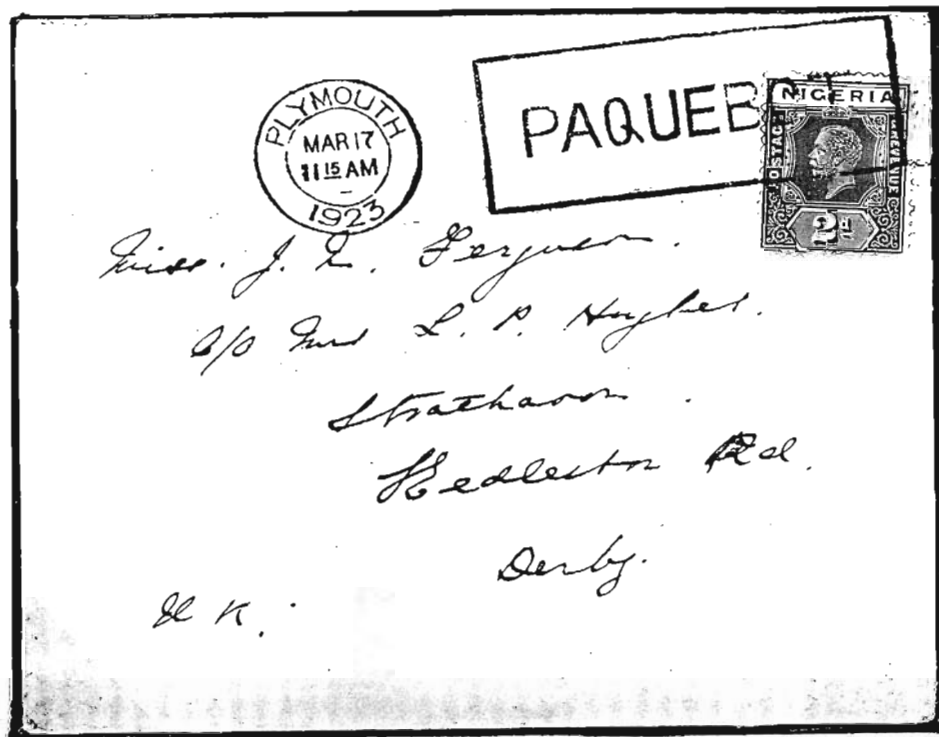 PLYMOUTH
MAR 17
11 15 AM
1923
PAQUEB
NIGERIA
POSTAGE
& REVENUE
2d
Miss. J. L. Ferguson.
c/o Mrs L. P. Hughes.
Strathavon.
Kedleston Rd.
Derby.
U K.